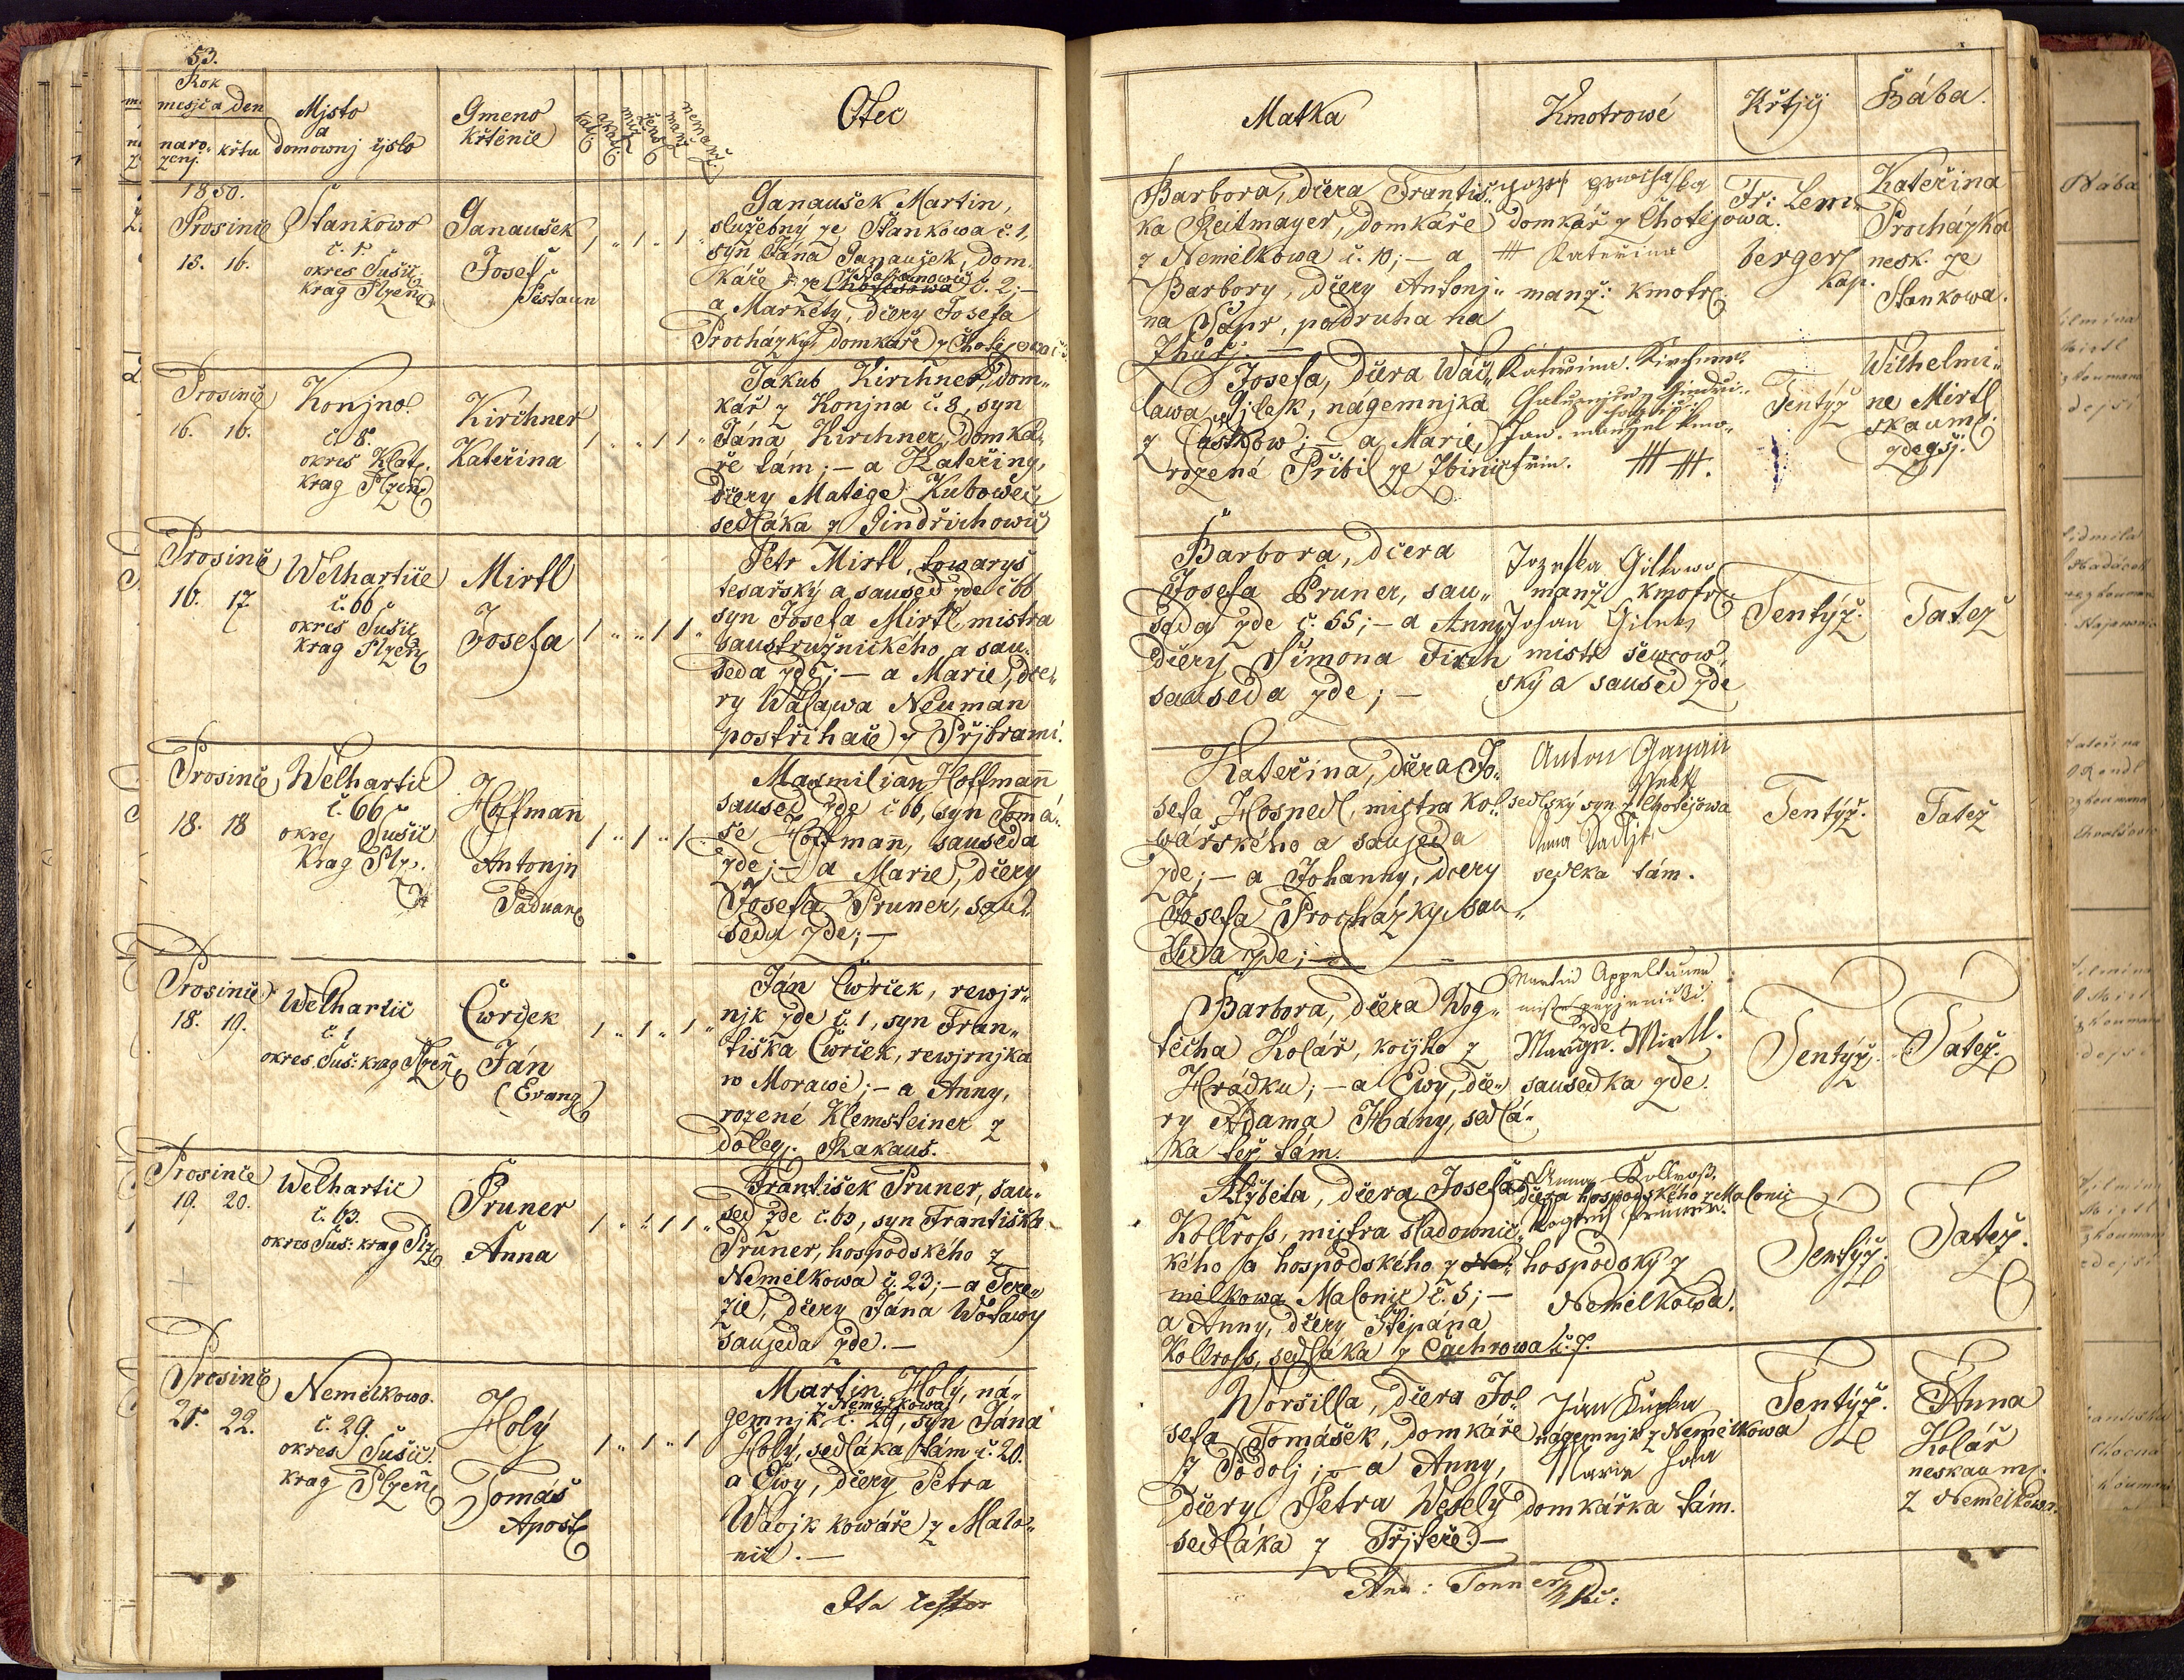 53.
Rok
mesjc a den
naro=
zenj. křtu
Mjsto
a
domownj čjslo
Gmeno
křtěnce
Otec
1850.
Prosinec
15. 16.
Stankowo
č. 1.
okres Sušic
krag Plzeň
Ganaušek
Josef
Ganaušek Martin,
služebný ze Stankowa č. 1,
syn Jána Ganaušek, dom=
káře č. 2; —
a Markéty, dcery Josefa
Procházky, domkáře z Chotěšowa
Prosinec
16. 16.
Konjno.
č. 8.
okres Klat.
krag Plzeň
Kirchner
Kateřina
Jakub Kirchner, dom=
kář z Konjna č. 8, syn
Jána Kirchner, domká=
ře tám; — a Kateřiny,
dcery Matěge Kubowec,
sedláka z Gindřichowic
Prosinec
16. 17
Welhartice
č. 66
okres Sušic
krag Plzeň
Mirtl
Josefa
Petr Mirtl, towaryš
tesařský a saused zde č 66,
syn Josefa Mirtl, mistra
saustružnického a sau=
seda zde; — a Marie, dce=
ry Wáclawa Neuman
postřihače z Přjbrami.
Prosinec
18. 18
Welhartic
č. 66
okres Sušic
Krag Plz.
Hoffmann
Antonjn
Paduan
Maxmilian Hoffmann
saused zde č 66, syn Tomá=
še Hoffmann, sauseda
zde; — a Marie, dcery
Josefa Pruner, sau=
seda zde; —
Prosinec
18. 19.
Welhartic
č. 1
okres Suš: krag Plzeň
Cwrček
Ján
(Evang)
Ján Cwrček, rewjr=
njk zde č. 1, syn Fran=
tiška Cwrček, rewjrnjka
w Morawě; — a Anny,
rozené Klemsteiner z
dolej. Rakaus.
Prosinec
19. 20.
Welhartic
č. 63.
okres Suš: krag Plz
Pruner
Anna
František Pruner, sau=
sed zde č. 63, syn Františka
Pruner, hospodského z
Nemělkowa č. 23; — a Tere=
zie, dcery Jána Wotawy
sauseda zde. —
Prosinec
21. 22.
Nemělkowo.
č. 29.
okres Sušic.
krag Plzeň
Holý
Tomáš
Apošt
Martin Holý, ná=
z Nemělkowa
gemnjk č. 29, syn Jána
Holý, sedláka tám č. 20.
a Ewy, dcery Petra
kowáře z Malo=
nic. —
Matka
Kmotrowé
Křtjcj
Bába.
Barbora, dcera Františ=
ka Reitmayer, domkáře
z Nemělkowa č. 10; — a
Barbory, dcery Antonj=
na podruha na
domkář z Chotěšowa.
Kateřina
manž: kmotr
Fr: Lem=
berger
kap.
Kateřina
Procházka
nesk. ze
Stankowa.
Josefa, dcera Wác=
lawa Gjlek, nágemnjka
z Častkow; — a Marie,
rozené Přibil ze Zbinic
Kateřina Kirchner
Jan. manžel kmo=
třin.
Tentýž
Wilhelmi=
ne Mirtl
skaum:
zdegšj.
Barbora, dcera
Josefa Pruner, sau=
seda zde č. 55; — a Anny
dcery Šimona Firch
sauseda zde; —
manž kmotr
Johan
mistr šewcow=
ský a saused zde
Tentýž.
Tatéž
Kateřina, dcera Jo=
sefa Hosnedl, mistra kol=
wářského a sauseda
zde; — a Johanny, dcery
Josefa Procházky, sau=
seda zde; —
Anton
sedlský syn z Chotěšowa
Anna
sedlka tám.
Tentýž.
Tatéž
Barbora, dcera Wog=
těcha Kolář, kočjho z
Hrádku; — a Ewy, dce=
ry Adama Hány, sedlá=
ka též tám.
Martin
zde
Margr. Mirtl.
sausedka zde.
Tentýž.
Tatéž.
Alžběta, dcera Josefa
Kollross, mistra sladownic=
kého a hospodského z Ne=
mělkowa Malonic č. 5; —
a Anny, dcery Štěpána
Kollross, sedláka z Čachrowa č. 7.
Anna Kollroß,
dcera hospodského z Malonic
hospodský z
Nemělkowa.
Tentýž.
Tatéž.
Woršilla, dcera Jo=
sefa Tomášek, domkáře
z Podolj; — a Anny,
dcery Petra Weselý
sedláka z Třjteře. —
Ján
nágemnjk z Nemělkowa
Marie
domkářka tám.
Tentýž.
Anna
Kolář
neskaum.
z Nemělkow.